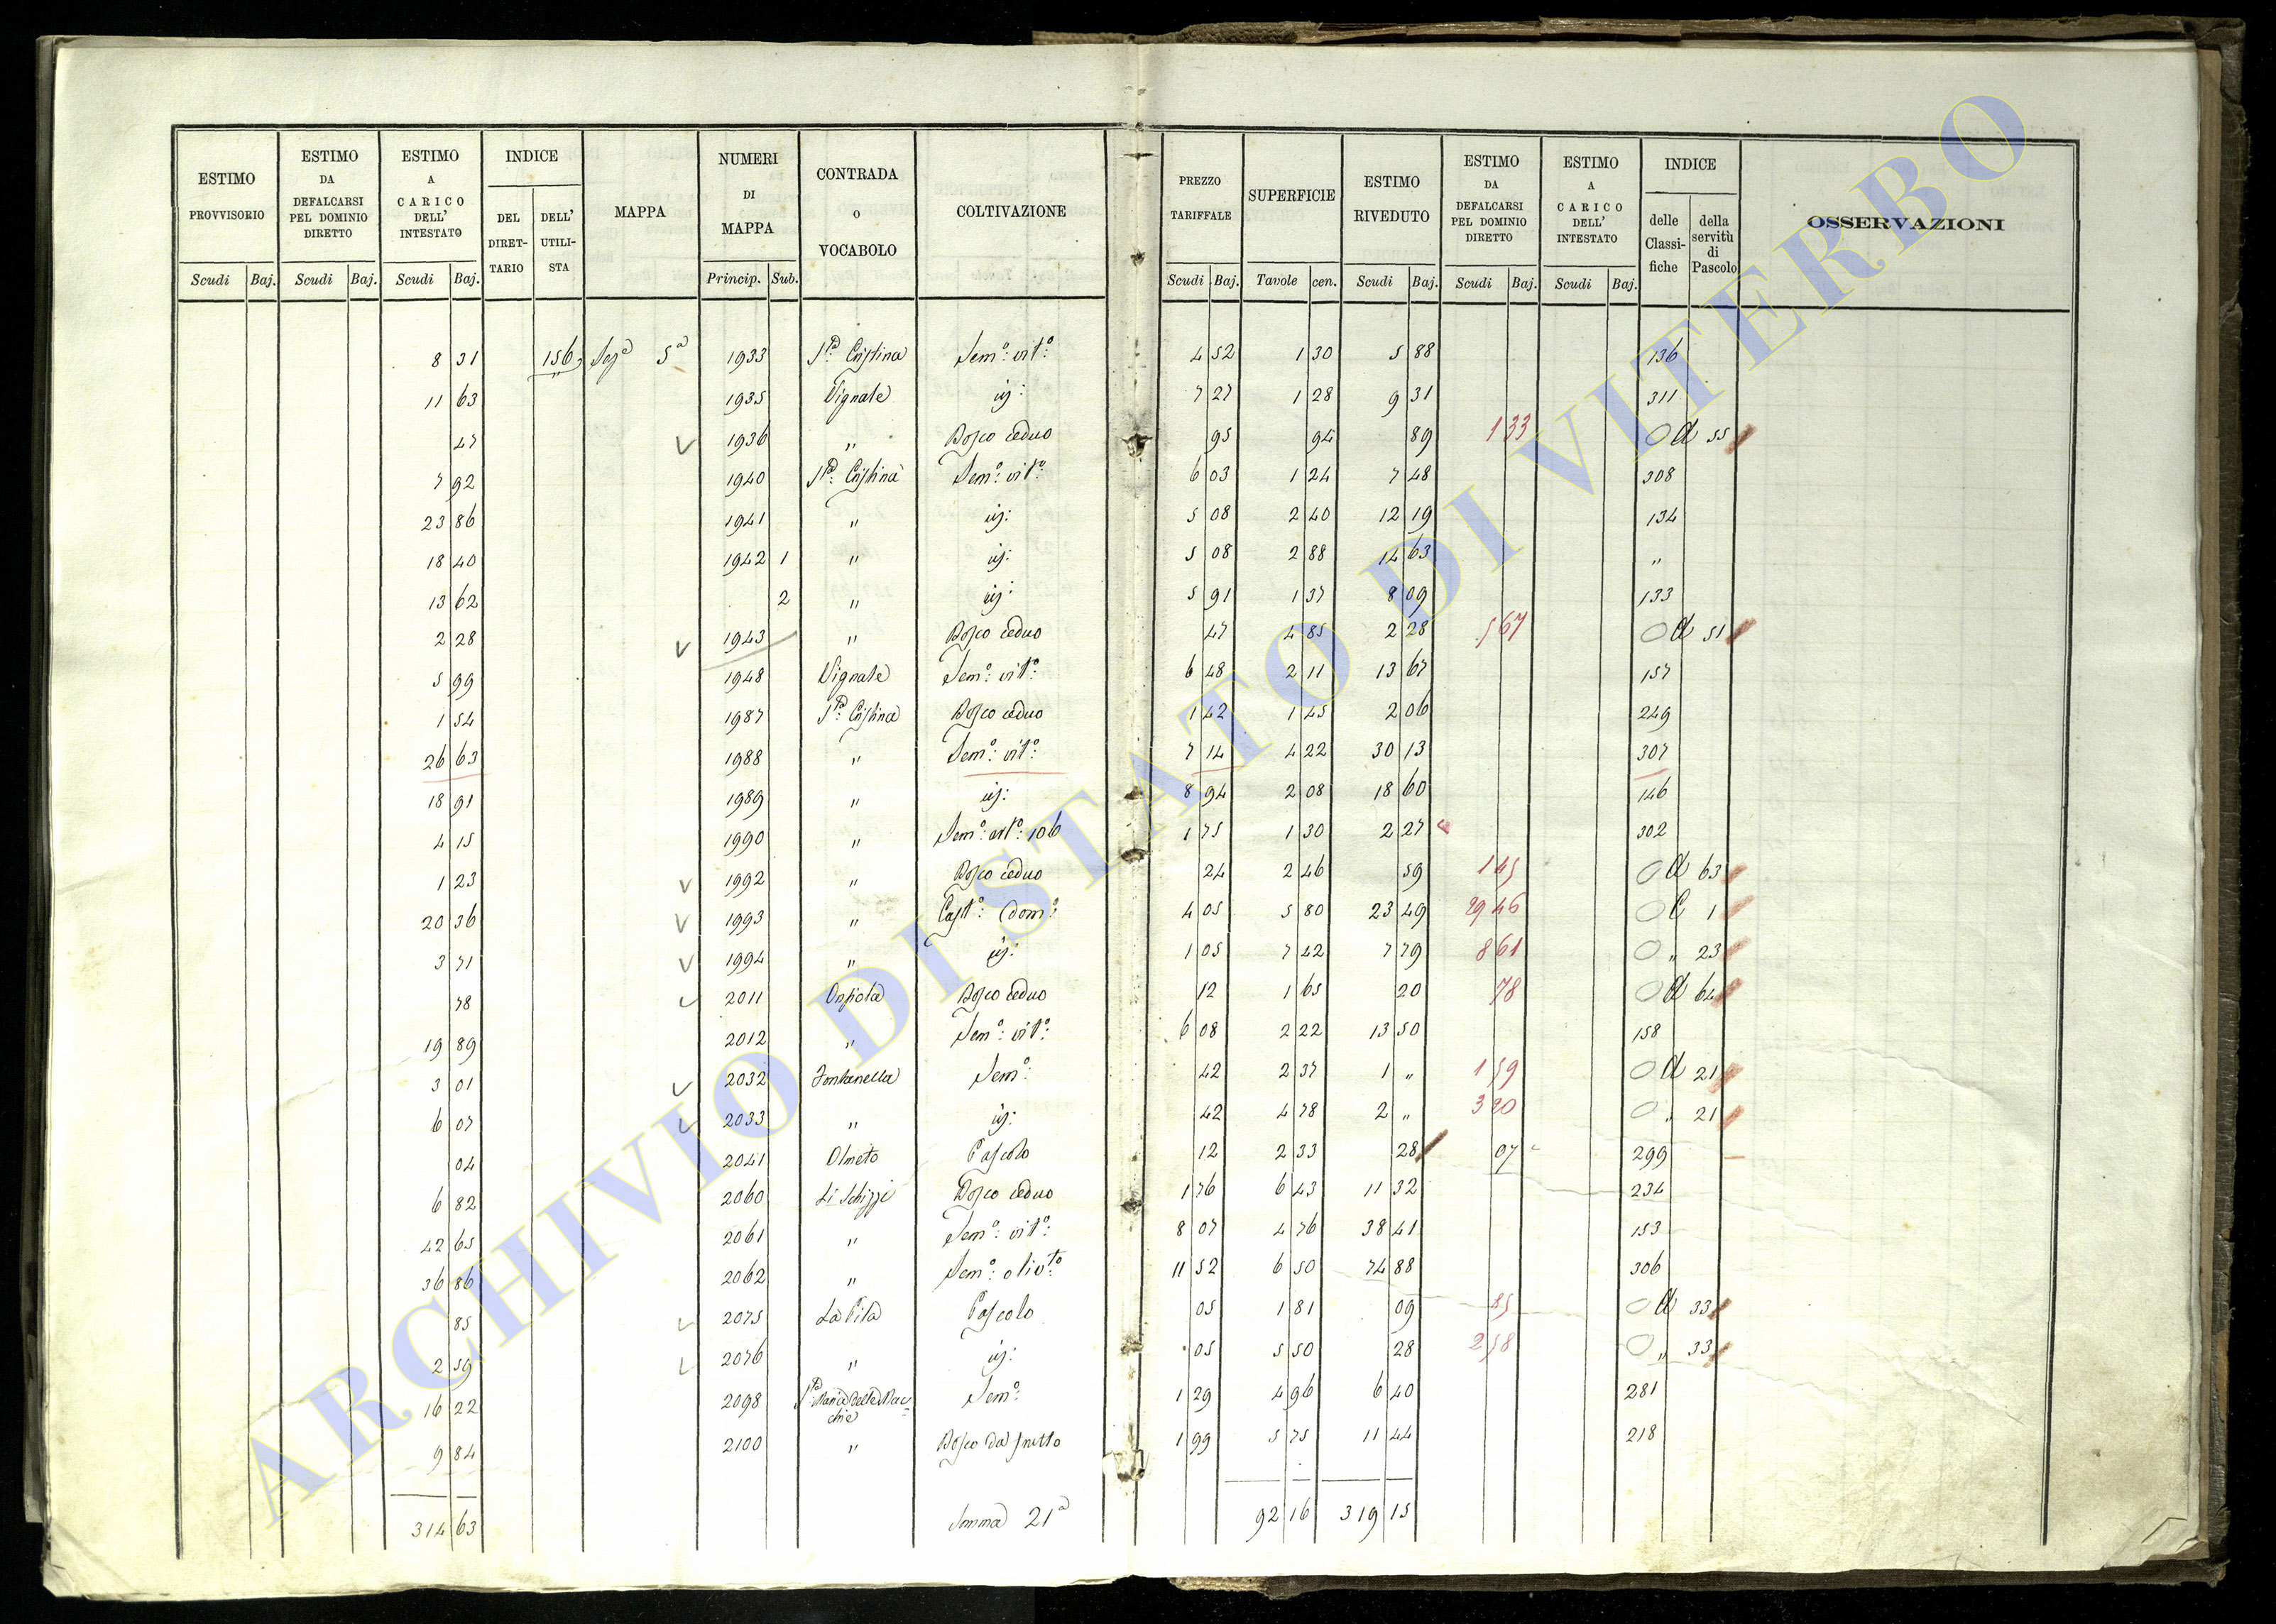 ESTIMO PROVVISORIO Scudi Baj.
ESTIMO DA DEFALCARSI PEL DOMINIO DIRETTO Scudi Baj.
ESTIMO A CARICO DELL' INTESTATO Scudi Baj.
INDICE DEL DIRETTARIO DELL' UTILISTA
MAPPA
NUMERI DI MAPPA Princip. Sub.
CONTRADA O VOCABOLO
COLTIVAZIONE
PREZZO TARIFFALE Scudi Baj.
SUPERFICIE Tavole cen.
ESTIMO RIVEDUTO Scudi Baj.
ESTIMO DA DEFALCARSI PEL DOMINIO DIRETTO Scudi Baj.
ESTIMO A CARICO DELL' INTESTATO Scudi Baj.
INDICE delle Classifiche della servitù di Pascolo
OSSERVAZIONI
8 31 156 Sez.a 5a 1933 S.ta Cristina Sem.o vit.o 4 52 1 30 5 88 136
11 63 1935 Vignale id: 7 27 1 28 9 31 311
47 1936 " Bosco ceduo 95 94 89 1 33 O A 55
7 92 1940 S.ta Cristina Sem.o vit.o 6 03 1 24 7 48 308
23 86 1941 " id: 5 08 2 40 12 19 134
18 40 1942 1 " id: 5 08 2 88 14 63 "
13 62 2 " id: 5 91 1 37 8 09 133
2 28 1943 " Bosco ceduo 47 4 85 2 28 5 67 O A 51
5 99 1948 Vignale Sem.o vit.o 6 48 2 11 13 67 157
1 54 1987 S.ta Cristina Bosco ceduo 1 42 1 45 2 06 249
26 63 1988 " Sem.o vit.o 7 14 4 22 30 13 307
18 91 1989 " id: 8 94 2 08 18 60 146
4 15 1990 " Sem.o vit.o 106 1 75 1 30 2 27 302
1 23 1992 " Bosco ceduo 24 2 46 59 1 45 O A 63
20 36 1993 " Cast.o dom.o 4 05 5 80 23 49 29 46 O C 1
3 71 1994 " id: 1 05 7 42 7 79 8 61 O " 23
78 2011 Bosco ceduo 12 1 65 20 78 O A 64
19 89 2012 " Sem.o vit.o 6 08 2 22 13 50 158
3 01 2032 Fontanella Sem.o 42 2 37 1 " 1 59 O A 21
6 07 2033 " id: 42 4 78 2 " 3 20 O " 21
04 2041 Olmeto Pascolo 12 2 33 28 07 299
6 82 2060 Li Schizzi Bosco ceduo 1 76 6 43 11 32 234
42 65 2061 " Sem.o vit.o 8 07 4 76 38 41 153
36 86 2062 " Sem.o oliv.to 11 52 6 50 74 88 306
85 2075 La Pila Pascolo 05 1 81 09 85 O A 33
2 59 2076 " id: 05 5 50 28 2 58 O " 33
16 22 2098 S.ta Maria delle Macchie Sem.o 1 29 4 96 6 40 281
9 84 2100 " Bosco da frutto 1 99 5 75 11 44 218
314 63 Somma 21a 92 16 319 15
ARCHIVIO DI STATO DI VITERBO